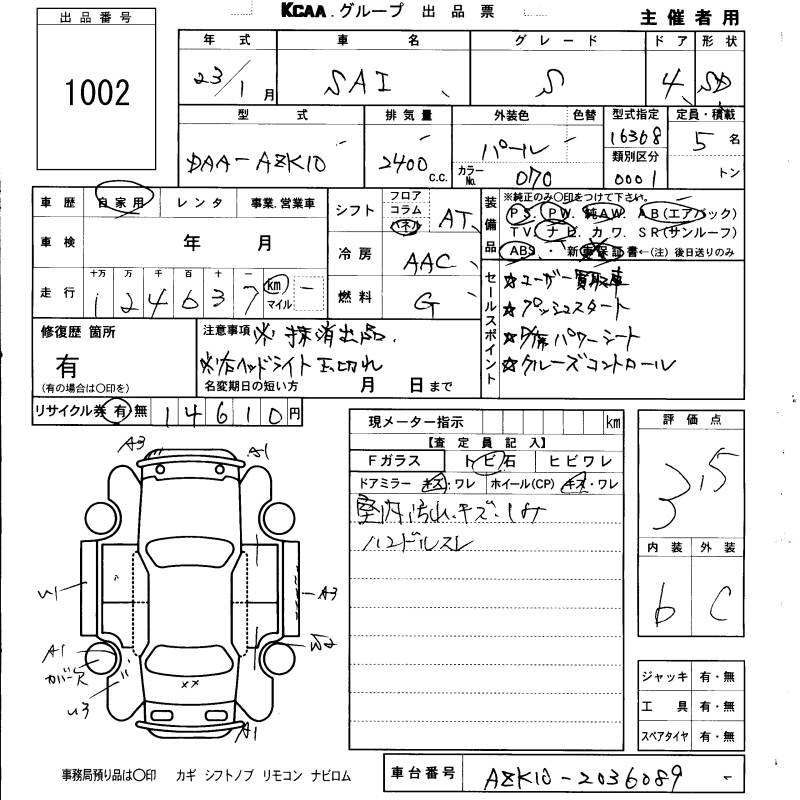 出品番号 KCAA.グループ 出品票 主催者用
1002
年式 車名 グレード ドア 形状
23/1月 SAI S 4 SD
型式 排気量 外装色 色替 型式指定 定員・積載
DAA-AZK10 2400c.c. パール 16308 5名
カラーNo. 070 類別区分 0001 トン
車歴 自家用 レンタ 事業.営業車 シフト フロア コラム パネル AT
車検 年 月 冷房 AAC
走行 十万 万 千 百 十 一 km マイル 燃料 G
1 2 4 6 3 7
装備品 ※純正のみ〇印をつけて下さい。
PS. PW. 純AW. AB(エアバック)
TV. ナビ. カワ. SR(サンルーフ)
ABS. 新車保証書←(注)後日送りのみ
セールスポイント
☆ユーザー買取車
☆プッシュスタート
☆D席パワーシート
☆クルーズコントロール
修復歴 箇所 有 (有の場合は〇印を)
注意事項 ※抹消出品.
※右ヘッドライト玉切れ
名変期日の短い方 月 日まで
リサイクル券 有 無 14610円
現メーター指示 km
【査定員記入】
Fガラス トビ石 ヒビワレ
ドアミラー キズ.ワレ ホイール(CP) キズ・ワレ
室内汚れ.キズ.シミ
ハンドルスレ
評価点
3.5
内装 外装
b C
A3 A1
U1 A3
A1 W2
カバー欠
U3
A1
ジャッキ 有・無
工具 有・無
スペアタイヤ 有・無
事務局預り品は〇印 カギ シフトノブ リモコン ナビロム
車台番号 AZK10-2036089